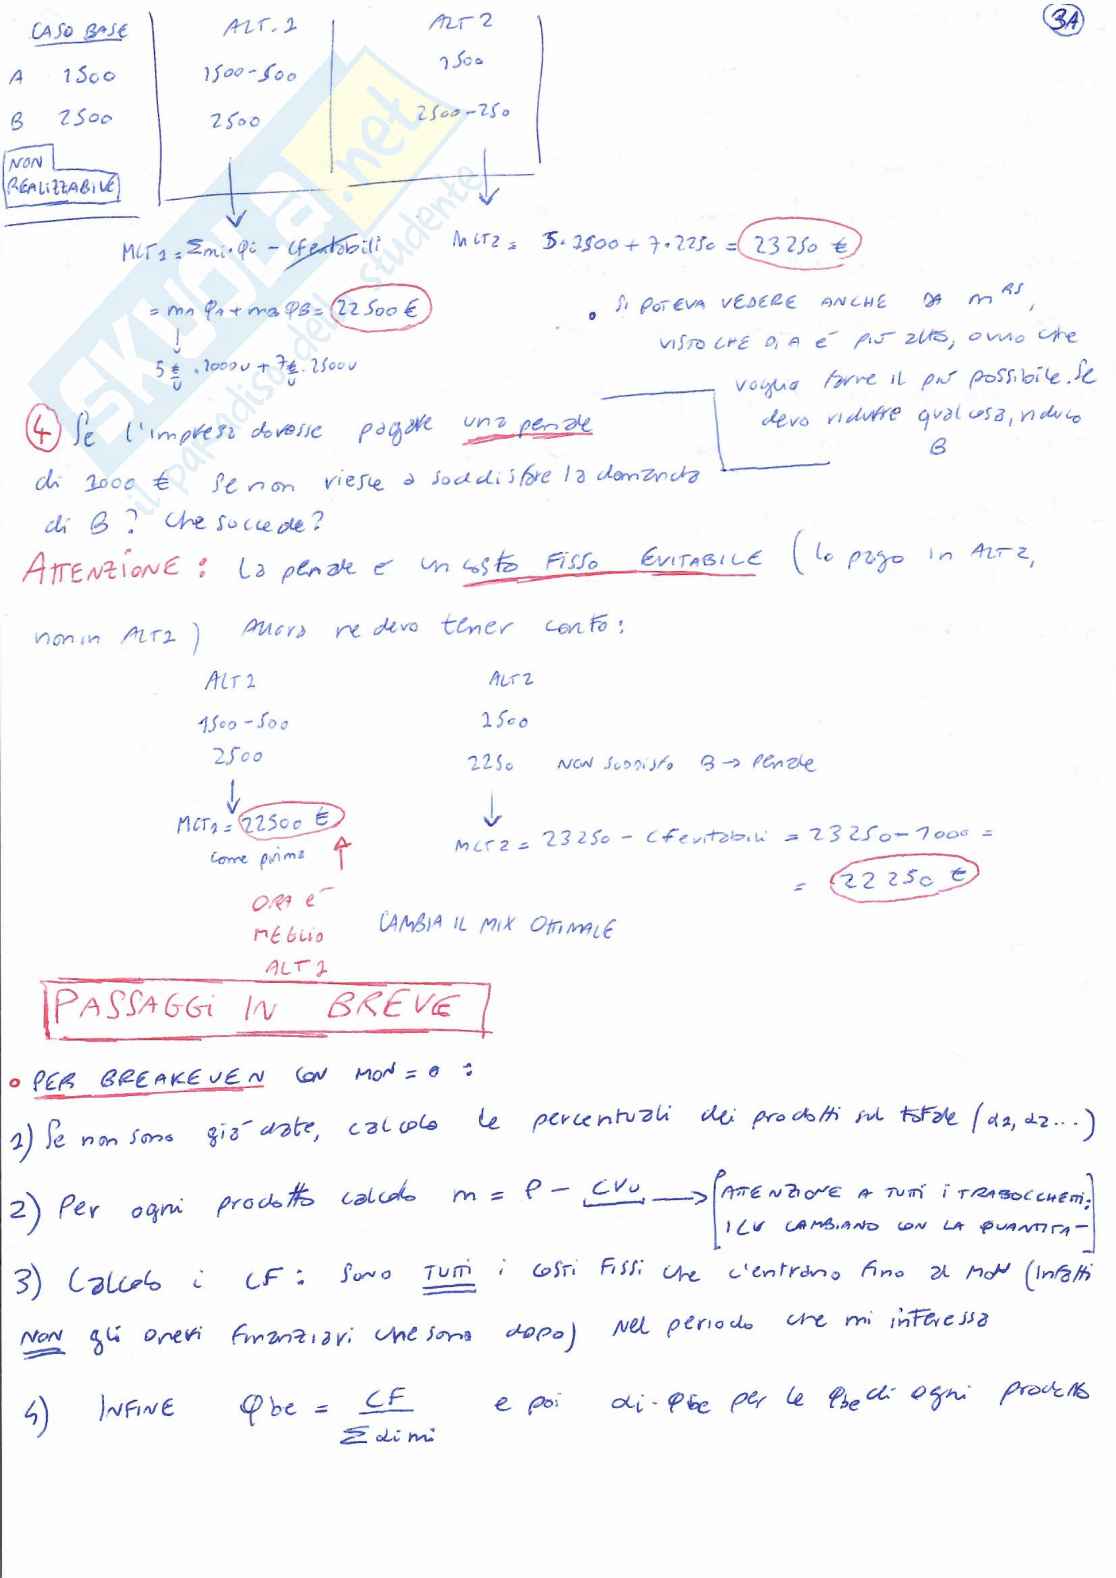 3A
CASO BASE ALT.1 ALT 2
A 1500 1500-500 1500
B 2500 2500 2500-250
NON
REALIZZABILE
MCT1 = Σmi·qi - cfevitabili MCT2 = 5·1500 + 7·2250 = 23250 €
= mA qA + mB qB = 22500 €
5 €/u · 1000u + 7 €/u · 2500u
• SI POTEVA VEDERE ANCHE DA m RS,
VISTO CHE DI A È PIÙ ALTO, OVVIO CHE
voglio farne il più possibile. Se
devo ridurre qualcosa, riduco
B
4 Se l'impresa dovesse pagare una penale
di 1000 € se non riesce a soddisfare la domanda
di B? Che succede?
ATTENZIONE: la penale è un costo FISSO EVITABILE (lo pago in ALT2,
non in ALT1) Allora ne devo tener conto:
ALT1 ALT2
1500-500 1500
2500 2250 NON soddisfo B → Penale
MCT1 = 22500 € MCT2 = 23250 - CFevitabili = 23250 - 1000 =
come prima = 22250 €
ORA È
MEGLIO
ALT 1
CAMBIA IL MIX OTTIMALE
PASSAGGI IN BREVE
• PER BREAKEVEN CON MON = 0 :
1) Se non sono già date, calcolo le percentuali dei prodotti sul totale (α1, α2...)
2) Per ogni prodotto calcolo m = P - CVu → [ATTENZIONE A TUTTI I TRABOCCHETTI:
I CV CAMBIANO CON LA QUANTITÀ]
3) Calcolo i CF: sono TUTTI i costi fissi che c'entrano fino al MON (infatti
NON gli oneri finanziari che sono dopo) nel periodo che mi interessa
4) INFINE Qbe = CF / Σ αi mi e poi αi·Qbe per le Qbe di ogni prodotto
SKUOLA.net
il paradiso dello studente